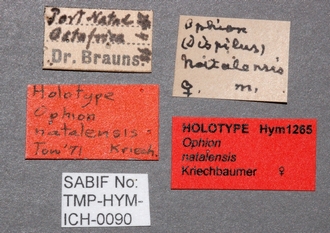 Port Natal
Ostafrica
Dr. Brauns.
Ophion
(Dispilus)
natalensis
♀. m.
Holotype
Ophion
natalensis
Tow '71 Kriech.
HOLOTYPE Hym1265
Ophion
natalensis
Kriechbaumer ♀
SABIF No:
TMP-HYM-
ICH-0090